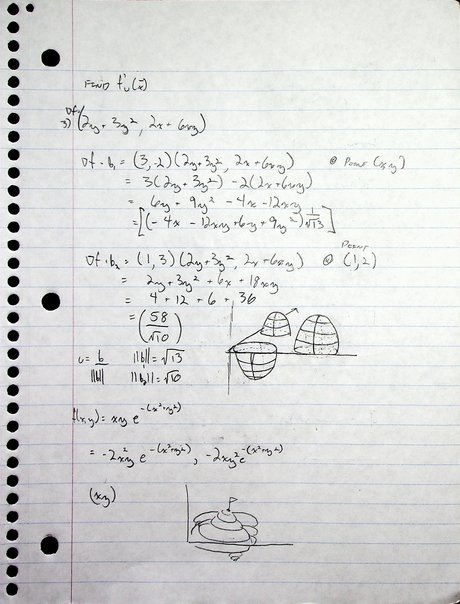 FIND f'u(x̄)
∇f =
3) (2y + 3y², 2x + 6xy)
∇f · b₁ = (3, -2)(2y+3y², 2x+6xy) @ POINT (x,y)
= 3(2y+3y²) -2(2x+6xy)
= 6y + 9y² - 4x - 12xy
= [(-4x - 12xy + 6y + 9y²) 1/√13]
∇f · b₂ = (1, 3)(2y+3y², 2x+6xy) @ POINT (1,2)
= 2y+3y² + 6x + 18xy
= 4 + 12 + 6 + 36
= (58/√10)
u = b/||b|| ||b|| = √13
||b₂|| = √10
f(x,y) = xy e^-(x²+y²)
= -2x²y e^-(x²+y²), -2xy² e^-(x²+y²)
(xy)